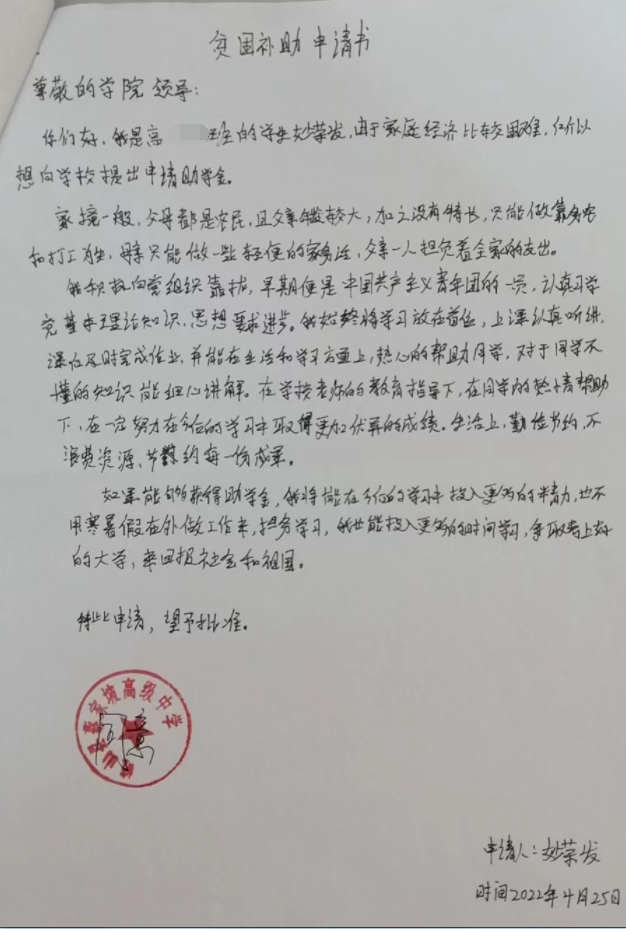 贫困补助申请书
尊敬的学院领导:
你们好,我是高 班的学生妙荣发,由于家庭经济比较困难,所以
想向学校提出申请助学金。
家境一般,父母都是农民,且父亲年龄较大,加之没有特长,只能做靠务农
和打工为生,母亲只能做一些轻便的家务活,父亲一人担负着全家的支出。
我积极向党组织靠拢,早期便是中国共产主义青年团的一员,认真学习
完基本理论知识,思想要求进步。我始终将学习放在首位,上课认真听讲,
课后及时完成作业,并能在生活和学习方面上,热心的帮助同学,对于同学不
懂的知识能细心讲解。在学校老师的教育指导下,在同学的热情帮助
下,在一定努力在今后的学习中取得更加优异的成绩。生活上,勤俭节约,不
浪费资源,节约每一份成果。
如果能够获得助学金,我将能在今后的学习中投入更多的精力,也不
用寒暑假在外做工作来,担务学习,我也能投入更多的时间学习,争取考上好
的大学,来回报社会和祖国。
特此申请,望予批准。
高级中学
同意
申请人:妙荣发
时间2022年4月25日